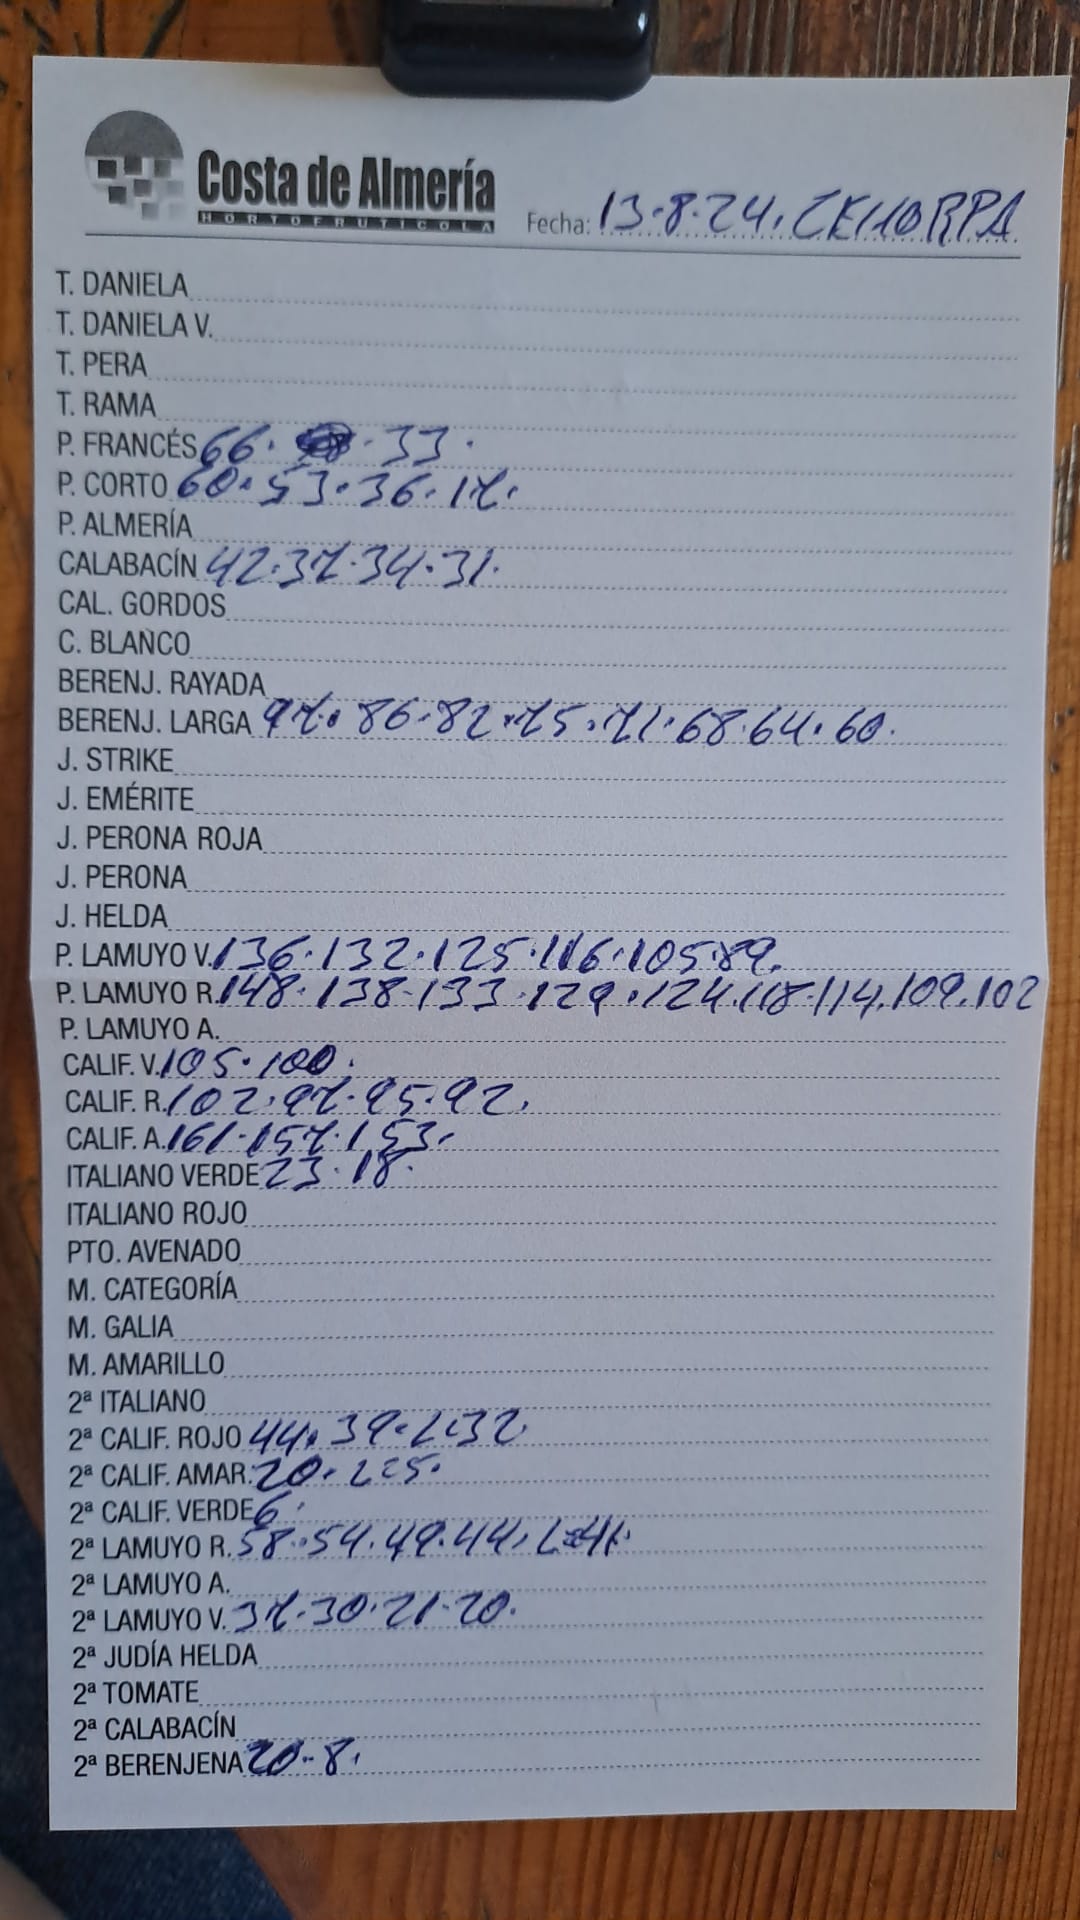 Costa de Almería
HORTOFRUTICOLA
Fecha: 13.8.24. ZEHORPA
T. DANIELA
T. DANIELA V.
T. PERA
T. RAMA
P. FRANCÉS 66. . 33.
P. CORTO 60. 53. 36. 17.
P. ALMERÍA
CALABACÍN 42.37.34.31.
CAL. GORDOS
C. BLANCO
BERENJ. RAYADA
BERENJ. LARGA 97. 86.82.75.71.68.64.60.
J. STRIKE
J. EMÉRITE
J. PERONA ROJA
J. PERONA
J. HELDA
P. LAMUYO V. 136.132.125.116.105.89.
P. LAMUYO R. 148.138.133.129.124.118.114.109.102
P. LAMUYO A.
CALIF. V. 105.100.
CALIF. R. 102.97.95.92.
CALIF. A. 161.157.153.
ITALIANO VERDE 23.18.
ITALIANO ROJO
PTO. AVENADO
M. CATEGORÍA
M. GALIA
M. AMARILLO
2ª ITALIANO
2ª CALIF. ROJO 44.39. 32.
2ª CALIF. AMAR. 20.
2ª CALIF. VERDE 6.
2ª LAMUYO R. 58.54.49.44. 41.
2ª LAMUYO A.
2ª LAMUYO V. 37.30.21.20.
2ª JUDÍA HELDA
2ª TOMATE
2ª CALABACÍN
2ª BERENJENA 20.8.